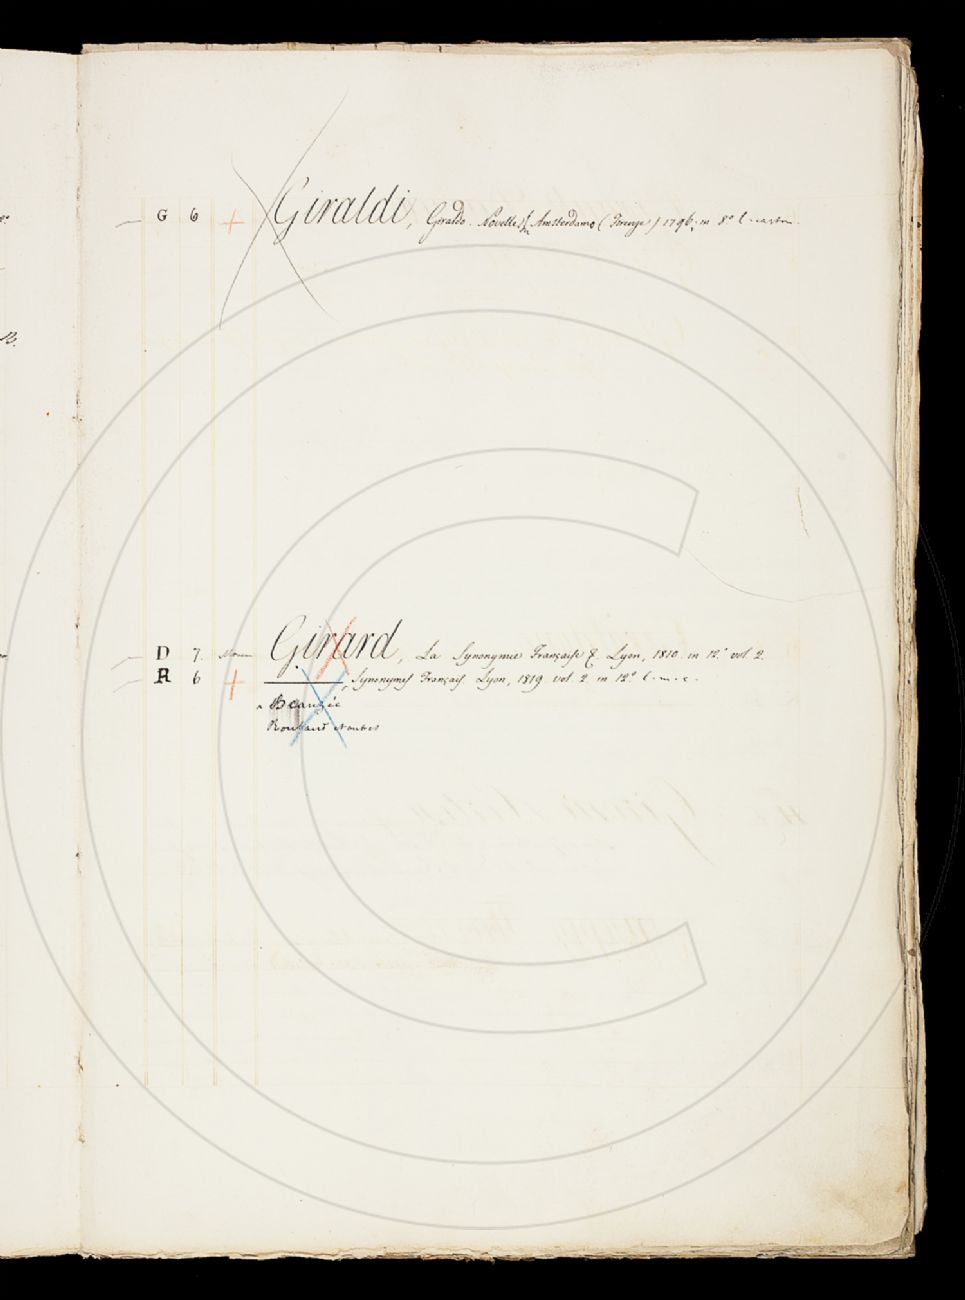 G 6 + Giraldi, Giraldo. Novelle. Amsterdamo (Firenze) 1796. in 8°
D 7. Girard, La Synonymie Française &. Lyon, 1810. in 12.° vol 2.
R 6 + ———, Synonymes Français Lyon, 1819 vol 2 in 12° l. m. c.
Beauzée
Roubaud et autres